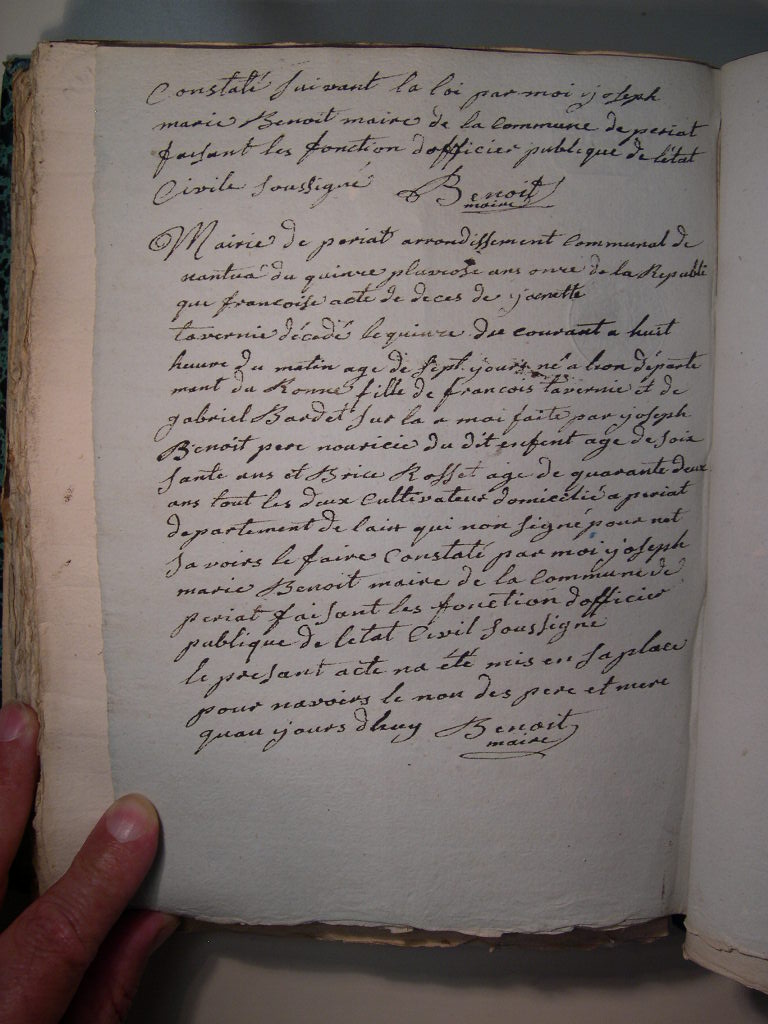 Constaté suivant la loi par moi yoseph
marie Benoit maire de la commune de periat
faisant les fonction dofficier publique de letat
Civile soussigné Benoit
maire
Mairie de periat arrondissement Communal de
nantua du quinze pluviose ans onze de la Republi
que francoise acte de deces de yanette
tavernie décédé le quinze du courant a huit
heure du matin age de sept yours né a lion départe
ment du Ronne fille de francois tavernie et de
gabriel Bardet sur la a moi faite par yoseph
Benoit pere nouricie du dit enfent age de soix
sante ans et Brice Rosset age de quarante deux
ans tout les deux Cultivateur domicilié a periat
departement de lain qui non signé pour net
savoirs le faire Constaté par moi yoseph
marie Benoit maire de la Commune de
periat faisant les fonction dofficier
publique de letat Civil soussigne
le presant acte na été mis en sa place
pour navoirs le non des pere et mere
quau yours dhuy Benoit
maire